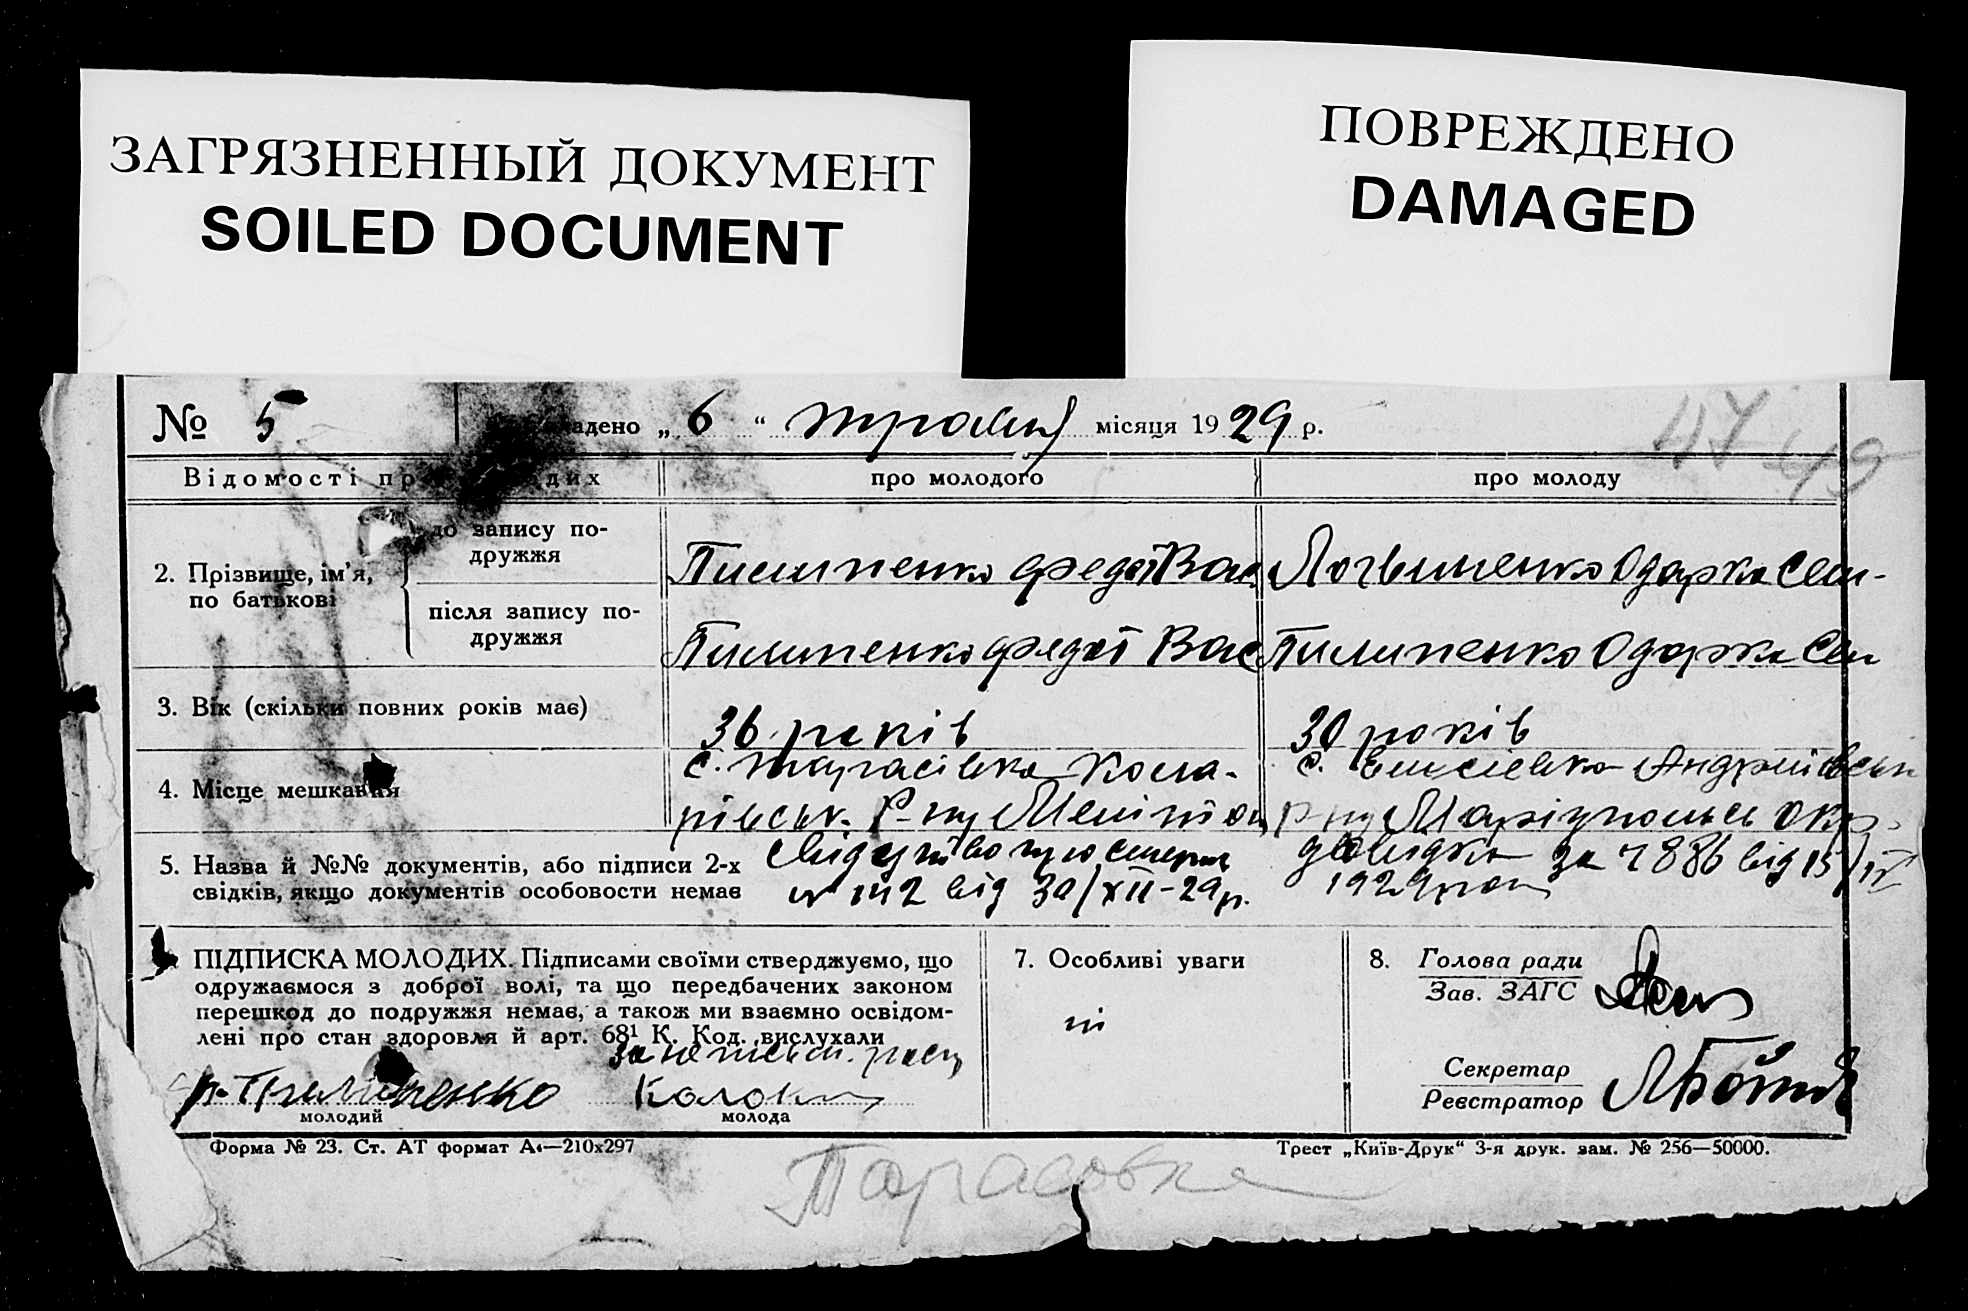 ЗАГРЯЗНЕННЫЙ ДОКУМЕНТ
SOILED DOCUMENT
ПОВРЕЖДЕНО
DAMAGED
47 49
№ 5 „ 6 “ травня місяця 1929 р.
Відомості про молодого про молоду
2. Прізвище, ім’я, по батькові
до запису по-
дружжя
Пилипенко Федот Вас Логвиненко Одарка Сем-
після запису по-
дружжя
Пилипенко Федот Вас Пилипенко Одарка Сем
3. Вік (скільки повних років має)
36 років 30 років
4. Місце мешкання
с. Тарасівка Кома-
рівськ. Р-ну Меліт
с. Андріївськ
Р-ну Маріупольсь окр.
5. Назва й №№ документів, або підписи 2-х
свідків, якщо документів особовости немає
142 від 30/XII-29р.
довідка за 4886 від 15/IV
1929
ПІДПИСКА МОЛОДИХ. Підписами своїми стверджуємо, що
одружаємося з доброї волі, та що передбачених законом
перешкод до подружжя немає, а також ми взаємно освідом-
лені про стан здоровля й арт. 68¹ К. Код. вислухали
за неписьм.
Пилипенко
молодий молода
7. Особливі уваги
ні
8. Голова ради
Зав. ЗАГС
Секретар
Реєстратор
Форма № 23. Ст. АТ формат А4—210x297 Трест „Київ-Друк“ 3-я друк. зам. № 256—50000.
Тарасовка